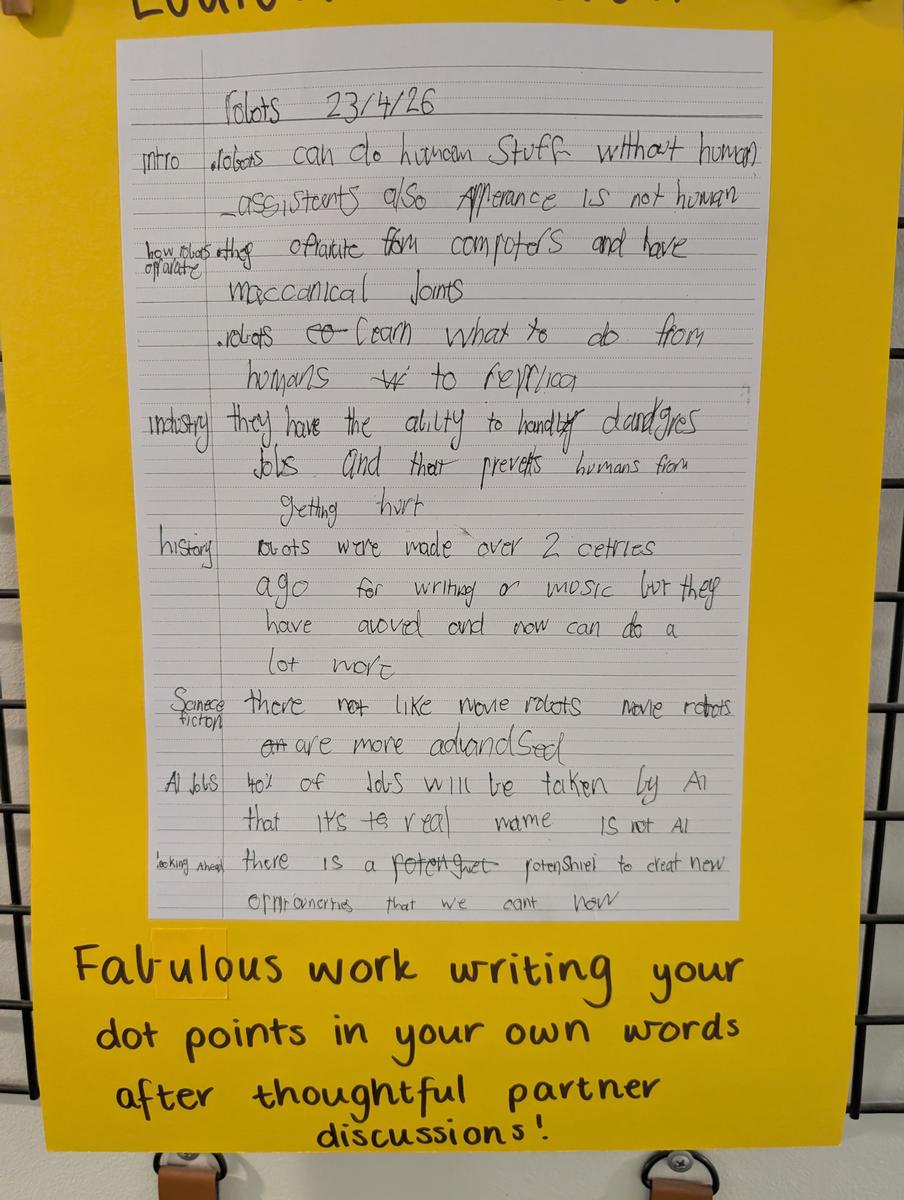 robots 23/4/26
intro .robots can do human Stuff without human
assisteents also Apperance is not human
how robots opratate .they opratate from computors and have
maccanical Joints
.robots co learn what to do from
homans wi to replica
industry they have the abilty to handle dandgres
Jobs and that prevets humans from
getting hurt
history robots were made over 2 cetries
ago for writing or mosic but they
have avoved and now can do a
lot more
Scinece fiction there not like movie robots movie robots
an are more advandSed
AI Jobs 40% of Jobs will be taken by AI
that it's to real name is not AI
looking Ahead there is a potenshiel to creat new
that we cant now
Fabulous work writing your
dot points in your own words
after thoughtful partner
discussions!